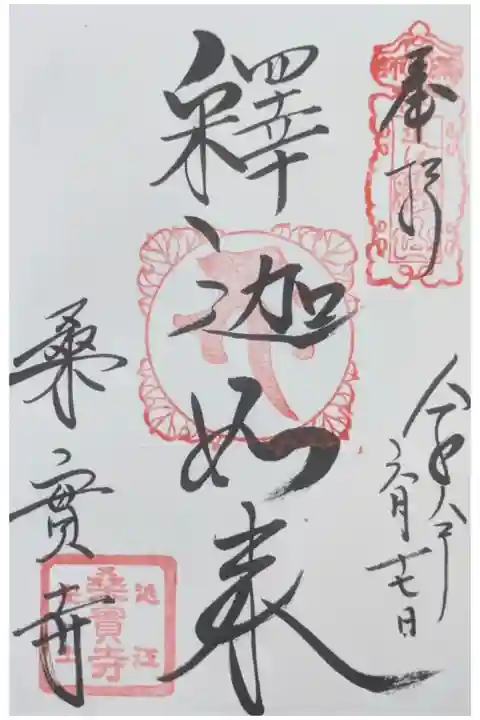 奉拝
令和六年
六月十七日
釋迦如来
桑實寺
桑實寺
近江